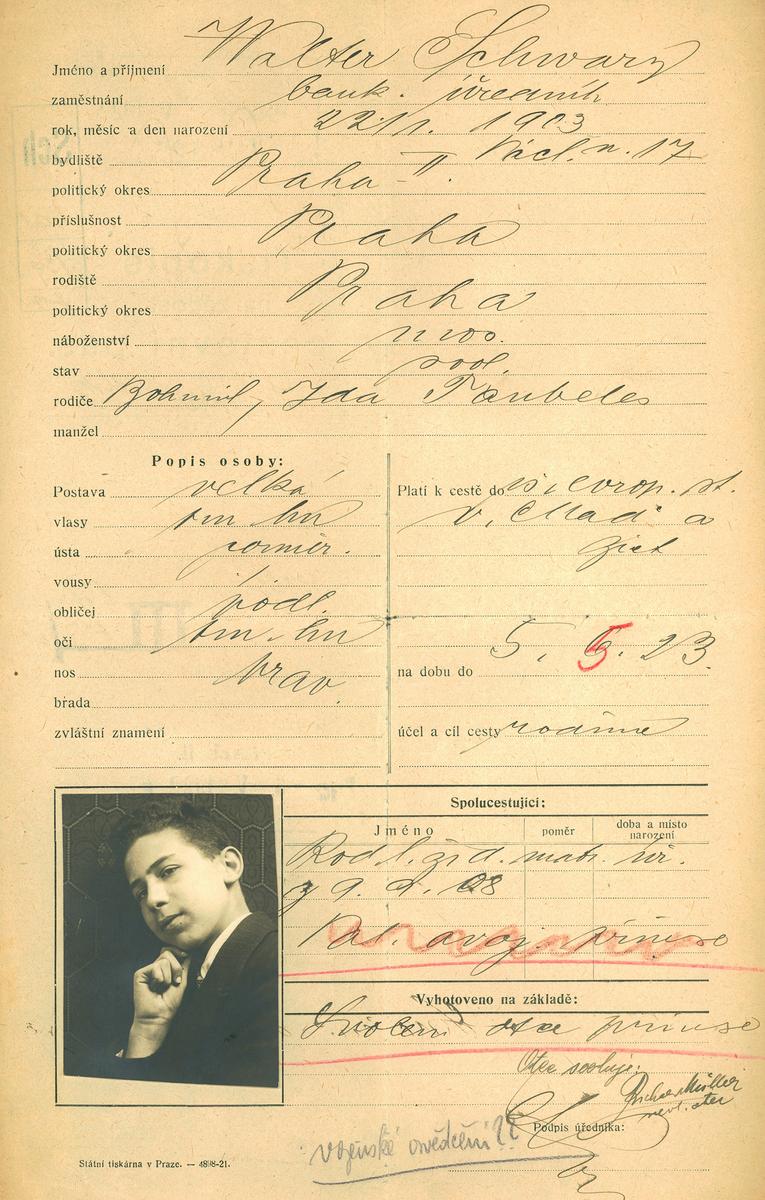 Jméno a příjmení Walter Schwarz
zaměstnání bank. úředník
rok, měsíc a den narození 22. 11. 1903
bydliště Václ. n. 17
politický okres Praha - II.
příslušnost
politický okres Praha
rodiště
politický okres Praha
náboženství mos.
stav svob.
rodiče Bohumil, Ida Taubeles
manžel
Popis osoby:
Postava velká
vlasy tm. hn
ústa poměr.
vousy /
obličej podl.
oči tm. hn
nos prav.
brada
zvláštní znamení
Platí k cestě do evrop. st.
v. Maď a
zpět
na dobu do 5. 5. 23.
účel a cíl cesty rodinné
Spolucestující:
Jméno poměr doba a místo narození
Rod. l. žid. matr. úř.
z 9. 2. 08
přinese
Vyhotoveno na základě:
Svolení otce přinese
Otec svoluje:
Podpis úředníka:
vojenské osvědčení??
Státní tiskárna v Praze. — 4898-21.